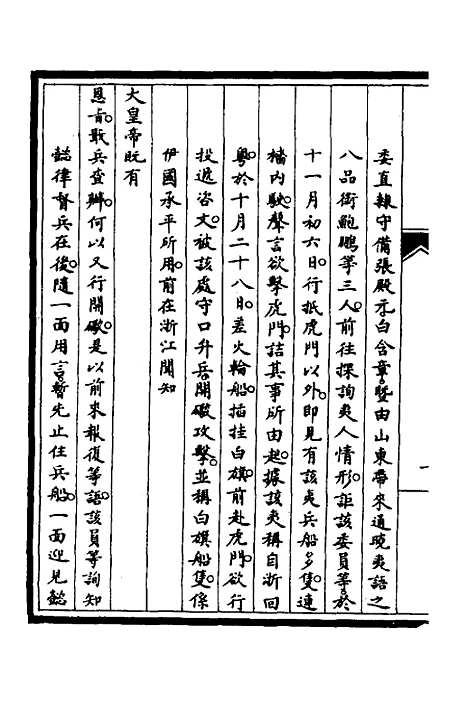 委直隸守備張殿元白含章暨由山東帶來通曉夷語之
八品銜鮑鵬等三人前往探詢夷人情形詎該委員等於
十一月初六日行抵虎門以外即見有該夷兵船多隻連
檣內駛聲言欲擊虎門詰其事所由起據該夷稱自浙回
粵於十月二十八日差火輪船插挂白旗前赴虎門欲行
投遞咨文被該處守口弁兵開礮攻擊並稱白旗船隻係
伊國承平所用前在浙江聞知
大皇帝既有
恩旨敢兵查辦何以又行開礮是以前來報復等語該員等詢知
懿律督兵在後隨一面用言暫先止住兵船一面迎見懿